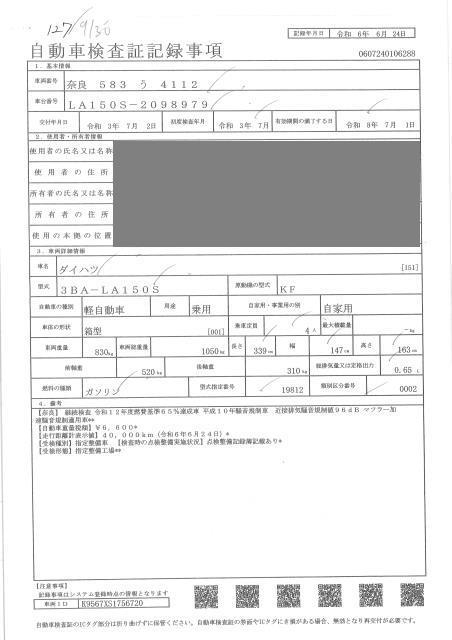 127/9/30
記録年月日 令和 6年 6月 24日
自動車検査証記録事項
0607240106288
1. 基本情報
車両番号 奈良 583 う 4112
車台番号 LA150S-2098979
交付年月日 令和 3年 7月 2日 初度検査年月 令和 3年 7月 有効期間の満了する日 令和 8年 7月 1日
2. 使用者・所有者情報
使用者の氏名又は名称
使用者の住所
所有者の氏名又は名称
所有者の住所
使用の本拠の位置
3. 車両詳細情報
車名 ダイハツ [151]
型式 3BA-LA150S 原動機の型式 KF
自動車の種別 軽自動車 用途 乗用 自家用・事業用の別 自家用
車体の形状 箱型 [001] 乗車定員 4人 最大積載量 -kg
車両重量 830kg 車両総重量 1050kg 長さ 339cm 幅 147cm 高さ 163cm
前軸重 520kg 後軸重 310kg 総排気量又は定格出力 0.65 L
燃料の種類 ガソリン 型式指定番号 19812 類別区分番号 0002
4. 備考
【奈良】 継続検査 令和12年度燃費基準65%達成車 平成10年騒音規制車 近接排気騒音規制値96dB マフラー加
速騒音規制適用車**
【自動車重量税額】¥6,600*
【走行距離計表示値】40,000km(令和6年6月24日)*
【受検種別】指定整備車 【検査時の点検整備実施状況】点検整備記録簿記載あり*
【受検形態】指定整備工場**
【注意事項】
記録事項はシステム登録時点の情報となります
車両ID K9567XS1756720
自動車検査証のICタグ部分は折り曲げずに保管ください。自動車検査証の券面やICタグにき損がある場合、無効となり再交付が必要です。